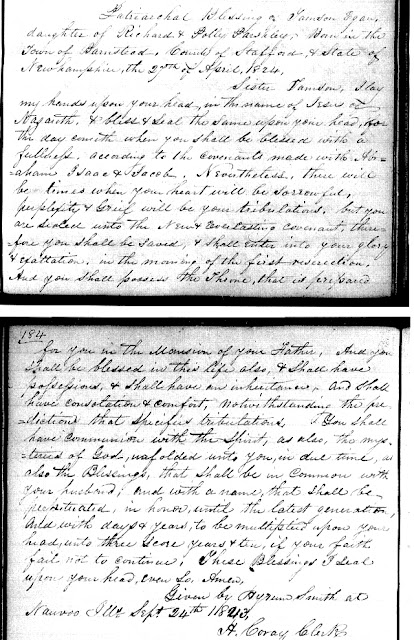 Patriarchal Blessing of Tamson Egan,
daughter of Richard & Polley Parshley; Born in the
Town of Barnstead, County of Stafford, & State of
New hampshire, the 27th of April, 1824.
Sister Tamson, I lay
my hands upon your head, in the name of Jesus of
Nazareth, & bless & seal the same upon your head, for
the day cometh when you shall be blessed with a
fullness, according to the covenants made with Ab-
-raham Isaac & Jacob. Nevertheless, there will
be times when your heart will be sorrowful,
perplexity & Grief will be your tribulations, but you
are sealed unto the New & Everlasting covenant, there-
fore you shall be saved, & shall enter into your glory
& exaltation, in the morning of the first resurection.
And you shall possess the Throne, that is prepared
184
for you in the Mansion of your Father, And you
Shall be blessed in this life also, & Shall have
possessions, & shall have an inheritance, And Shall
have consolation & comfort, notwithstanding the pre-
-diction that specifies tribulations, & You shall
have communion with the Spirit, as also, the mys-
-teries of God, unfolded unto you, in due time, as
also the Blessings, that shall be in Common with
your husband; and with a name, that shall be
perpetuated, in honor, until the latest generation,
And with days & years, to be multiplied upon your
head, unto three score years & ten, if your faith
fail not to continue, These Blessings I seal
upon your head, even So, Amen,
Given by Hyrum Smith at
Nauvoo Ills Sept. 24th
H. Coray Clerk